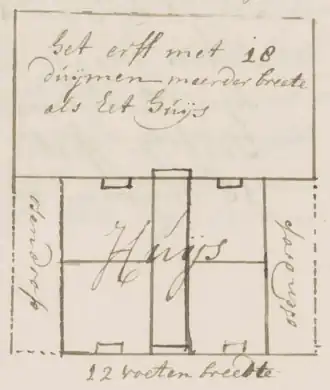 het erff met 18
duijmen meerder breete
als het huijs
osendrop
Huijs
osendrop
12 voeten breedte